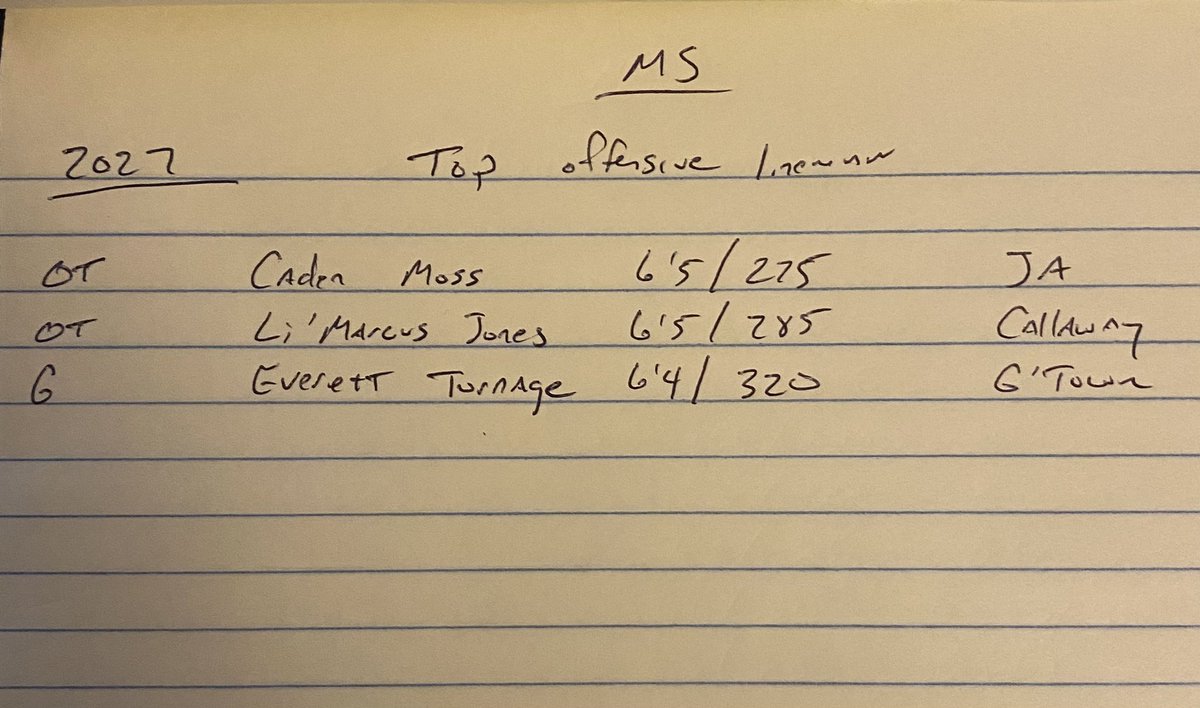 MS
2027 Top offensive linemen
OT Caden Moss 6'5/275 JA
OT Li'Marcus Jones 6'5/285 Callaway
G Everett Turnage 6'4/320 G'Town